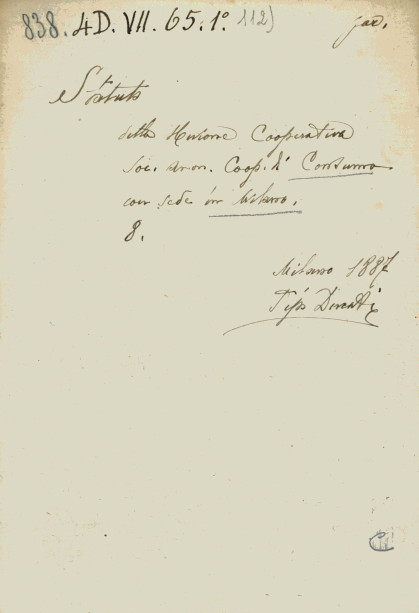 838. 4D. VII. 65. 1º 112)
Statuto
della Unione Cooperativa
Soc. anon. Coop. di Consumo
con sede in Milano.
8.
Milano 1887
Tip.